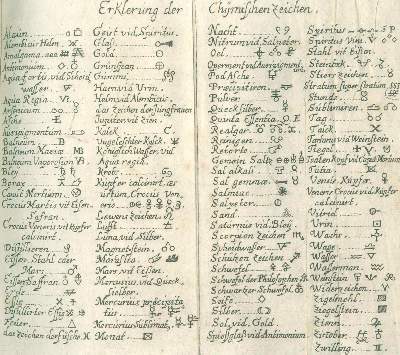 Erklerung der
Chÿmischen Zeichen.
Alaun.
Alembic. vid. Helm.
Amalgama.
Antimonium.
Aqua fortis, vid. Scheid
wasser.
Aqua Regia
Arsenicum.
Asche
Auripigmentum
Balneum.
Balneum Mariæ
Balneum Vaporosum
Bley
Borax
Caput Mortuum
Crocus Martis vid. Eisen
Safran.
Crocus Veneris vid. Kupfer
calcinirt
Distilliren
Eisen. Stahl oder
Mars
Eisen Saffran
Essig
Distillirter Essig
Feuer
das Zeichen der Fische
Geist vid. Spiritus.
Glas.
Gold
Grünspan
Gummi
Harn vid. Urin.
Helm vid. Alembic.
das Zeichen der Jungfrauen
Jupiter vid. Zien
Kalck
Ungeleschter Kalck
Königlich Wasser vid.
Aqua regia.
Krebs
Kupfer calcinirt
Löwens Zeichen
Luft
Luna, vid. Silber.
Magnetstein
Mars, vid. Eisen.
Mercurius vid. Queck
silber.
Mercurius præcipita
tus
Mercurius Sublimat.
Monat
Nacht
Nitrum vid. Salpeter.
Oel
Operment vid. Auripigment
Pott Asche
Præcipitiren
Pulver
Queck silber
Quinta Essentia
Realgar
Reinigen
Retorte
Gemein Saltz
Sal alkali
Sal gemmæ
Salmiac
Salpeter
Sand
Saturnus vid. Bleÿ.
Scorpion zeichen
Scheidwasser
Schützen zeichen
Schwefel
Schwefel der Philosophen
Schwartzer Schwefel
Seife
Silber
Sol vid. Gold
Spiesglas vid. Antimonium
Spiritus
Spiritus Vini
Stahl vid. Eisen
Steinbock
Stiers zeichen
Stratum super stratum
Stunde
Sublimiren
Tag
Talck
Tartarus vid. Weinstein
Tiegel
Todten Kopf vid. Caput Mortuum
Tutia
Venus. Kupfer
Veneris Crocus vid. Kupfer
calcinirt.
Vitriol
Urin
Wachs
Wage
Wasser
Wasserman
Weinstein
Widerzeichen
Ziegelmehl
Ziegelstein
Zinn
Zinnober
Zwilling